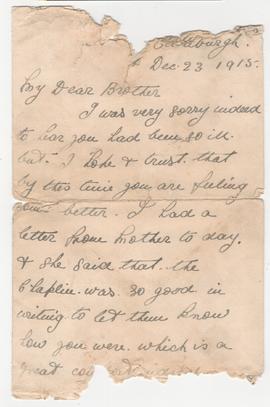 Edinburgh.
Dec. 23 1915.
My Dear Brother
I was very sorry indeed
to hear you had been so ill.
but. I hope & trust. that
by this time you are feeling
better. I had a
letter from Mother to day.
& she said that. the
Chaplin. was. so good in
writing to let them know
how you were. which is a
great